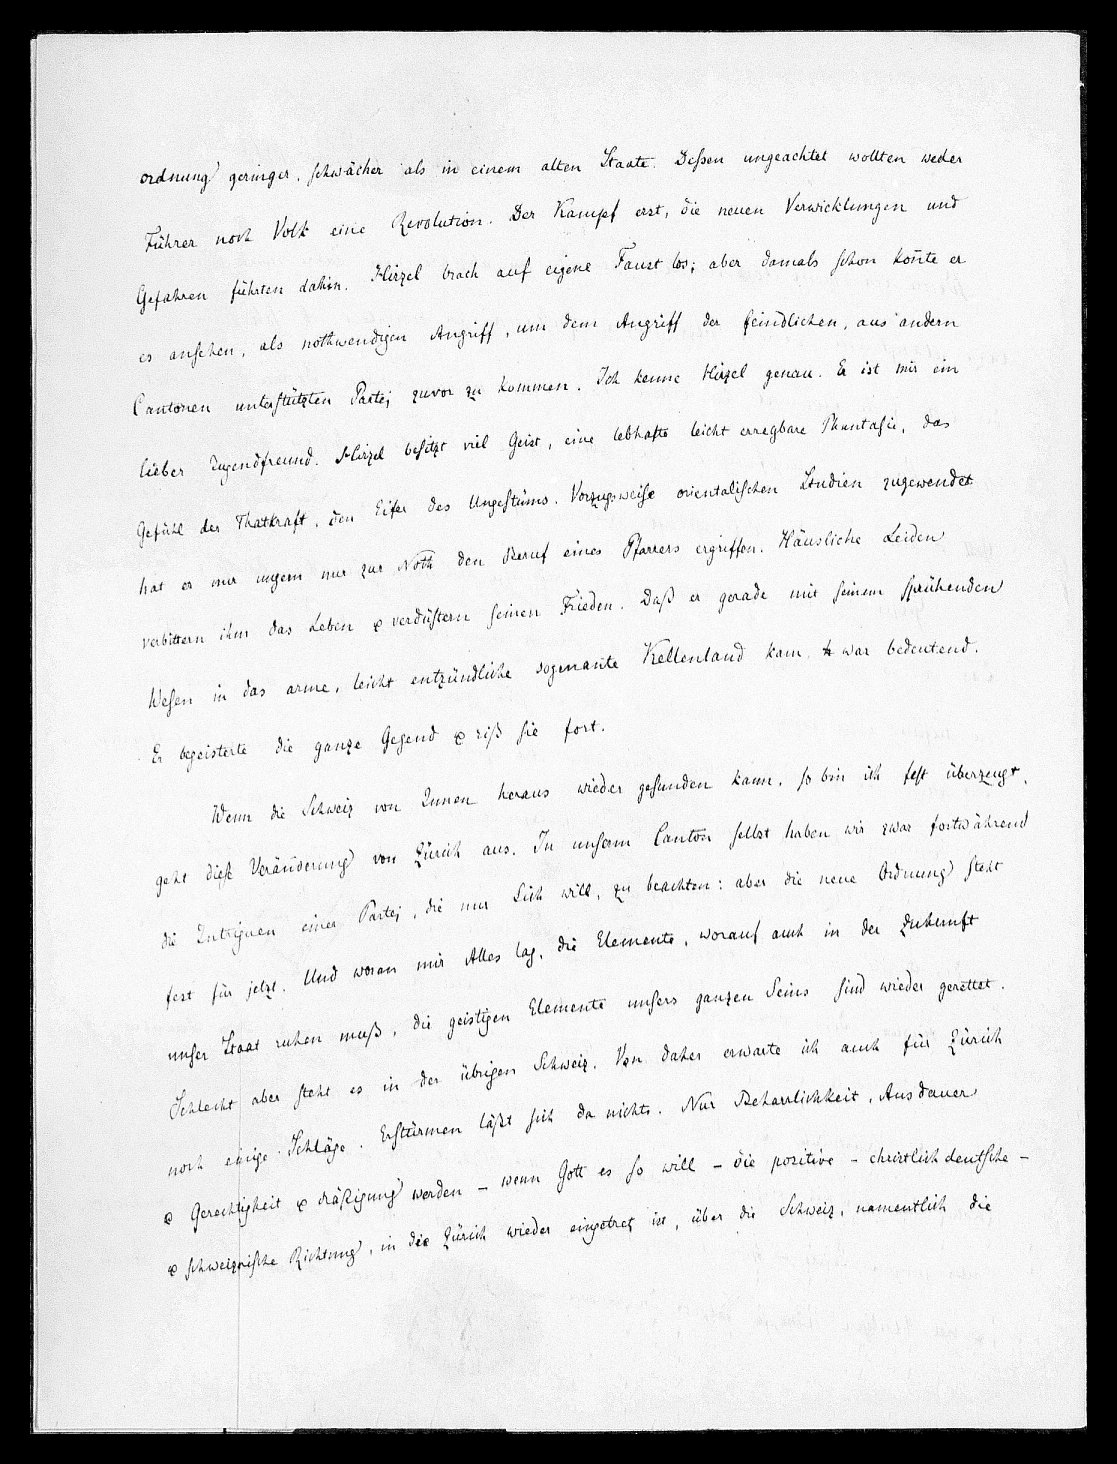 ordnung geringer, schwächer als in einem alten Staate. Deßen ungeachtet wollten weder
Führer noch Volk eine Revolution. Der Kampf erst, die neuen Verwicklungen und
Gefahren führten dahin. Hirzel brach auf eigene Faust los; aber damals schon kon̄te er
es ansehen, als nothwendigen Angriff, um dem Angriff der feindlichen, aus andern
Cantonen unterstützten Partej zuvor zu kommen. Ich kenne Hirzel genau. Er ist mir ein
lieber Jugendfreund. Hirzel besitzt viel Geist, eine lebhafte leicht erregbare Phantasie, das
Gefühl der Thatkraft, den Eifer des Ungestüms. Vorzugsweise orientalischen Studien zugewendet
hat er nur ungern nur zur Noth den Beruf eines Pfarrers ergriffen. Häusliche Leiden
verbittern ihm das Leben & verdüstern seinen Frieden. Daß er gerade mit seinem sprühenden
Wesen in das arme, leicht entzündliche sogenan̄te Kellenland kam, war bedeutend.
Er begeisterte die ganze Gegend & riß sie fort.
Wenn die Schweiz von Innen heraus wieder gesunden kann, so bin ich fest überzeugt,
geht diese Veränderung von Zürich aus. In unserm Canton selbst haben wir zwar fortwährend
die Intriguen einer Partej, die nur Sich will, zu beachten: aber die neue Ordnung steht
fest für jetzt. Und woran mir Alles lag, die Elemente, worauf auch in der Zukunft
unser Staat ruhen muß, die geistigen Elemente unsers ganzen Seins sind wieder gerettet.
Schlecht aber steht es in der übrigen Schweiz. Von daher erwarte ich auch für Zürich
noch einige Schläge. Erstürmen läßt sich da nichts. Nur Beharrlichkeit, Ausdauer
& Gerechtigkeit & Mäßigung werden – wenn Gott es so will – die positive – christlich deutsche –
& schweizerische Richtung, in die Zürich wieder ist, über die Schweiz, namentlich die